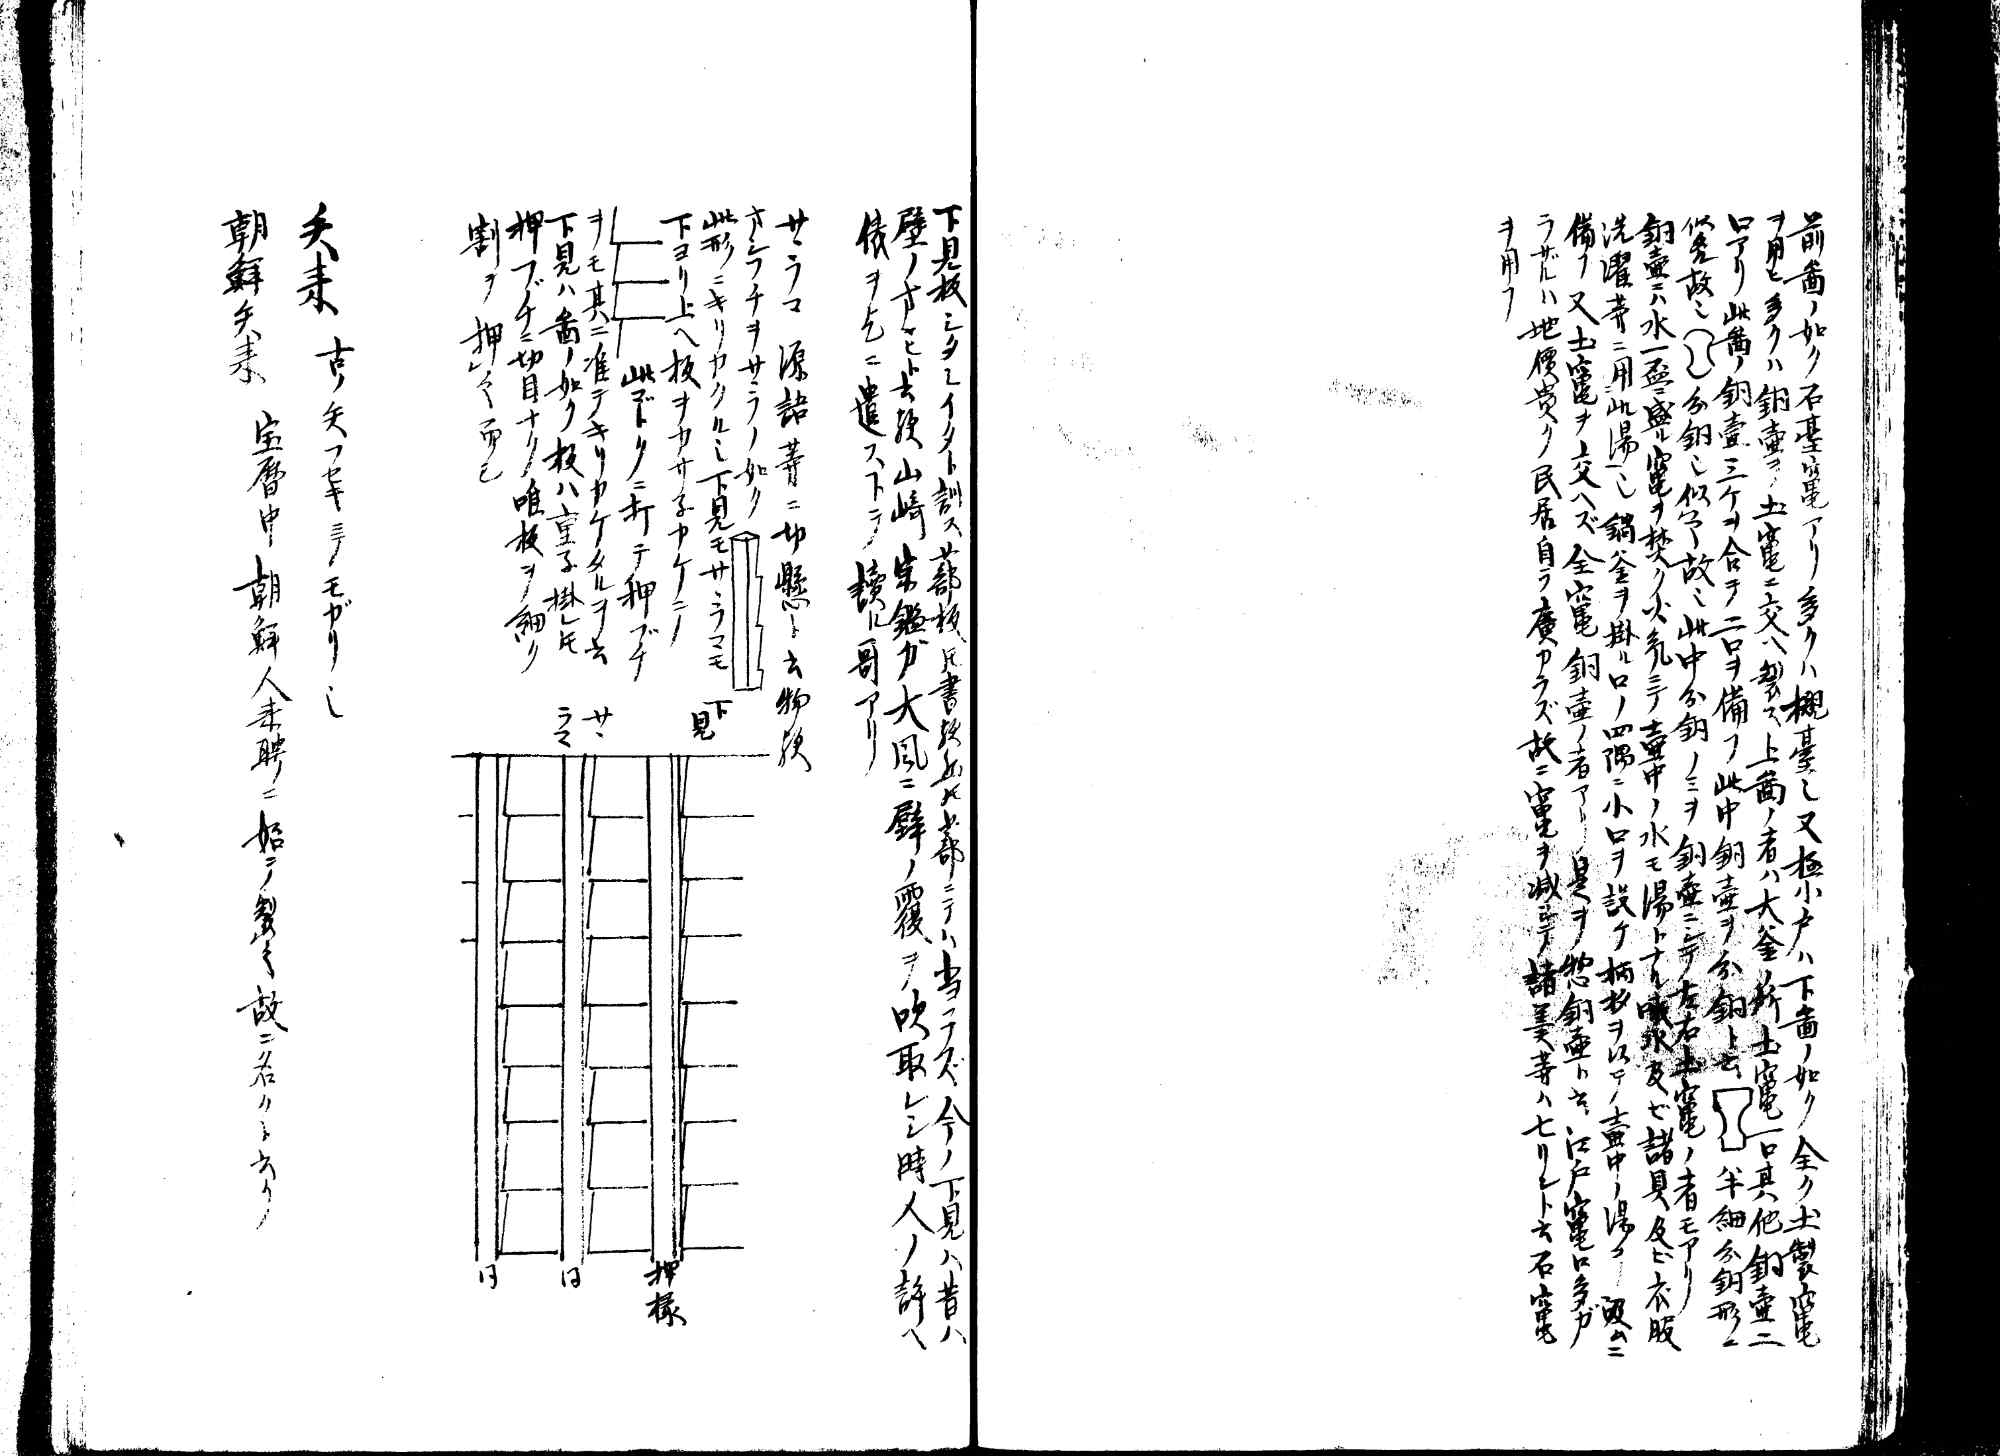 前啚ノ如ク石基竈アリ多クハ櫃臺也又極小戸ハ下啚ノ如ク全ク土製竈
ヲ用ヒ多クハ銅壷ヲ土竈ニ交ヘ製ス上啚ノ者ハ大釜ノ所土竈一口其他銅壷二
口アリ此啚ノ銅壷三ケヲ合テ二口ヲ備フ此中銅壷ヲ分銅ト云 半細分銅形ニ
似タル故也 分銅ニ似タル故也此中分銅ノミヲ銅壷ニシテ左右土竈ノ者モアリ
銅壷ニハ水一盃ニ盛ル竈ヲ焚ク火気ニテ壷中ノ水モ湯トナル 及ビ諸具及ビ衣服
洗濯等ニ用此湯也鍋釜ヲ掛ル口ノ四隅ニ小口ヲ設ケ柄杓ヲ以テ壷中ノ湯ヲ汲ムニ
備フ又土竈ヲ交ヘズ全竈銅壷ノ者アリ是ヲ惣銅壷ト云江戸竈口多カ
ラザルハ地價貴ク民居自ラ廣カラズ故ニ竈ヲ減ジテ諸羹等ハ七リント云石竈
ヲ用フ
下見板シタミイタト訓ス 今ノ下見ハ昔ハ
壁ノ ト云歟山崎宗鑑ガ大風ニ壁ノ覆ヲ吹取レシ時人ノ許ヘ
俵ヲ乞ニ遣ストテ讀ル哥アリ
サヽラコ 源語等ニ切懸ト云物歟
オシブチヲサヽラノ如ク
此形ニキリカクル也下見モサヽラコモ
下ヨリ上ヘ板ヲカサ子カケニ
此ゴトクニ打テ押ブチ
ヲモ其ニ准テキリカケタルヲ云
下見ハ啚ノ如ク板ハ重子掛レ𪜈
押ブチニ切目ナク唯板ヲ細ク
割ヲ押レ 而已
下見
サヽラコ
押椽
同
同
矢来 古ノ矢フセキニテノモガリ也
朝鮮矢来 宝暦中朝鮮人来聘ニ始テ製ス故ニ名クト云リ